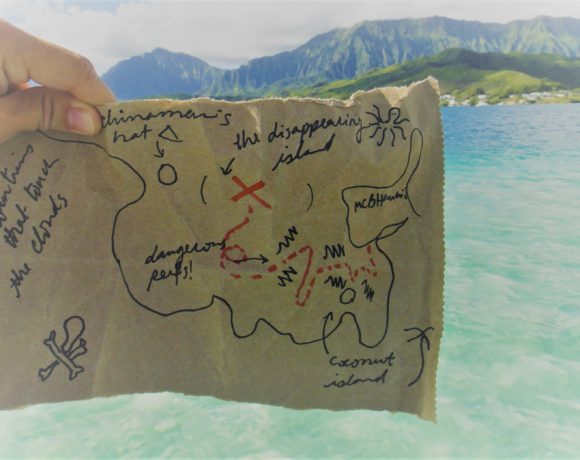 chinamen's
hat
the disappearing
island
that touch
the clouds
MCBHawaii
dangerous
reefs!
coconut
island